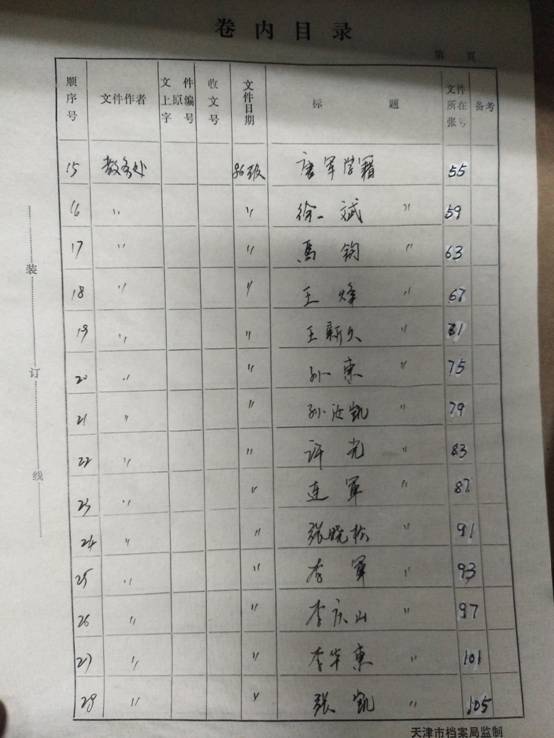 卷内目录
第 页
顺序号 文件作者 文件上原编字号 收文号 文件日期 标题 文件所在张号 备考
15 教务处 86级 唐军学籍 55
16 〃 〃 徐一斌 〃 59
17 〃 〃 马钧 〃 63
18 〃 〃 王烽 〃 67
19 〃 〃 王新久 〃 71
20 〃 〃 孙东 〃 75
21 〃 〃 孙汝凯 〃 79
22 〃 〃 许光 〃 83
23 〃 〃 连军 〃 87
24 〃 〃 张晓 〃 91
25 〃 〃 李军 〃 93
26 〃 〃 李庆山 〃 97
27 〃 〃 李华东 〃 101
28 〃 〃 张凯 〃 105
装订线
天津市档案局监制